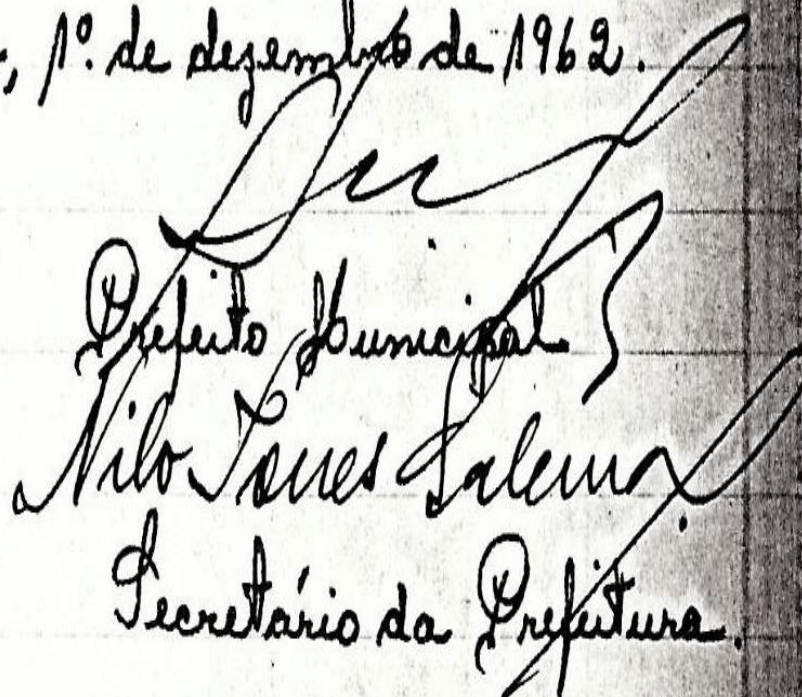 , 1º de dezembro de 1962.
Prefeito Municipal
Nilo Torres Salema
Secretário da Prefeitura.